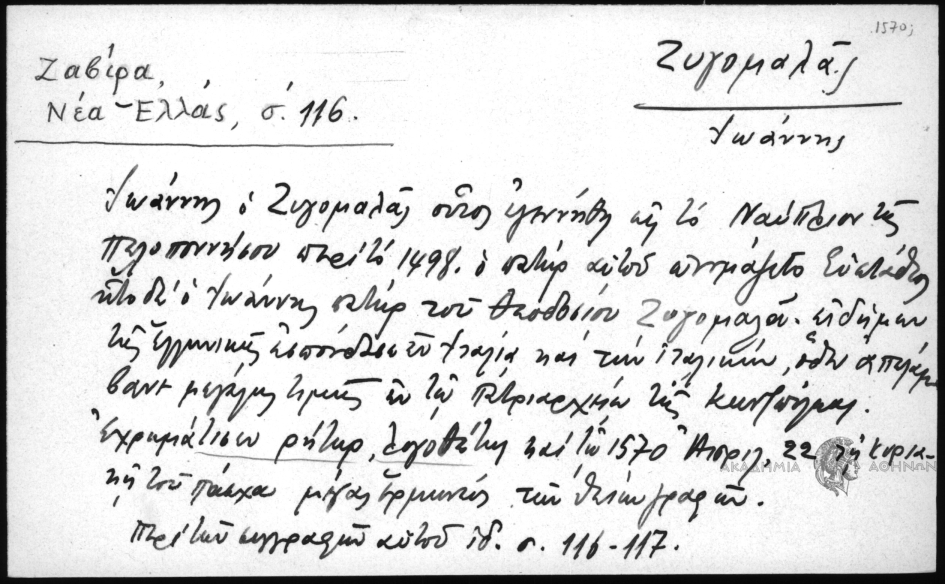 1570;
Ζαβίρα,
Νέα-Ἑλλάς, σ. 116.
Ζυγομαλᾶς
Ἰωάννης
Ἰωάννης ὁ Ζυγομαλᾶς οὗτος ἐγεννήθη εἰς τὸ Ναύπλιον τῆς
Πελοποννήσου περὶ τὸ 1498. ὁ πατὴρ αὐτοῦ ὠνομάζετο Εὐστάθιος
ἦτο δὲ ὁ Ἰωάννης πατὴρ τοῦ Θεοδοσίου Ζυγομαλᾶ.
τῆς ἑλληνικῆς ἐσπούδασεν ἐν Ἰταλίᾳ καὶ τὴν ἰταλικήν, ὅθεν ἀπελάμ
βανε μεγάλης τιμῆς ἐν τῷ Πατριαρχείῳ τῆς Κων/πόλεως.
Ἐχρημάτισεν ρήτωρ, λογοθέτης καὶ τῷ 1570 Ἀπριλ. 22 τῇ Κυρια-
κῇ τοῦ Πάσχα μέγας ἑρμηνεὺς τῶν θείων γραφῶν.
Περὶ τῶν συγγραφῶν αὐτοῦ ἰδ. σ. 116-117.
ΑΚΑΔΗΜΙΑ ΑΘΗΝΩΝ